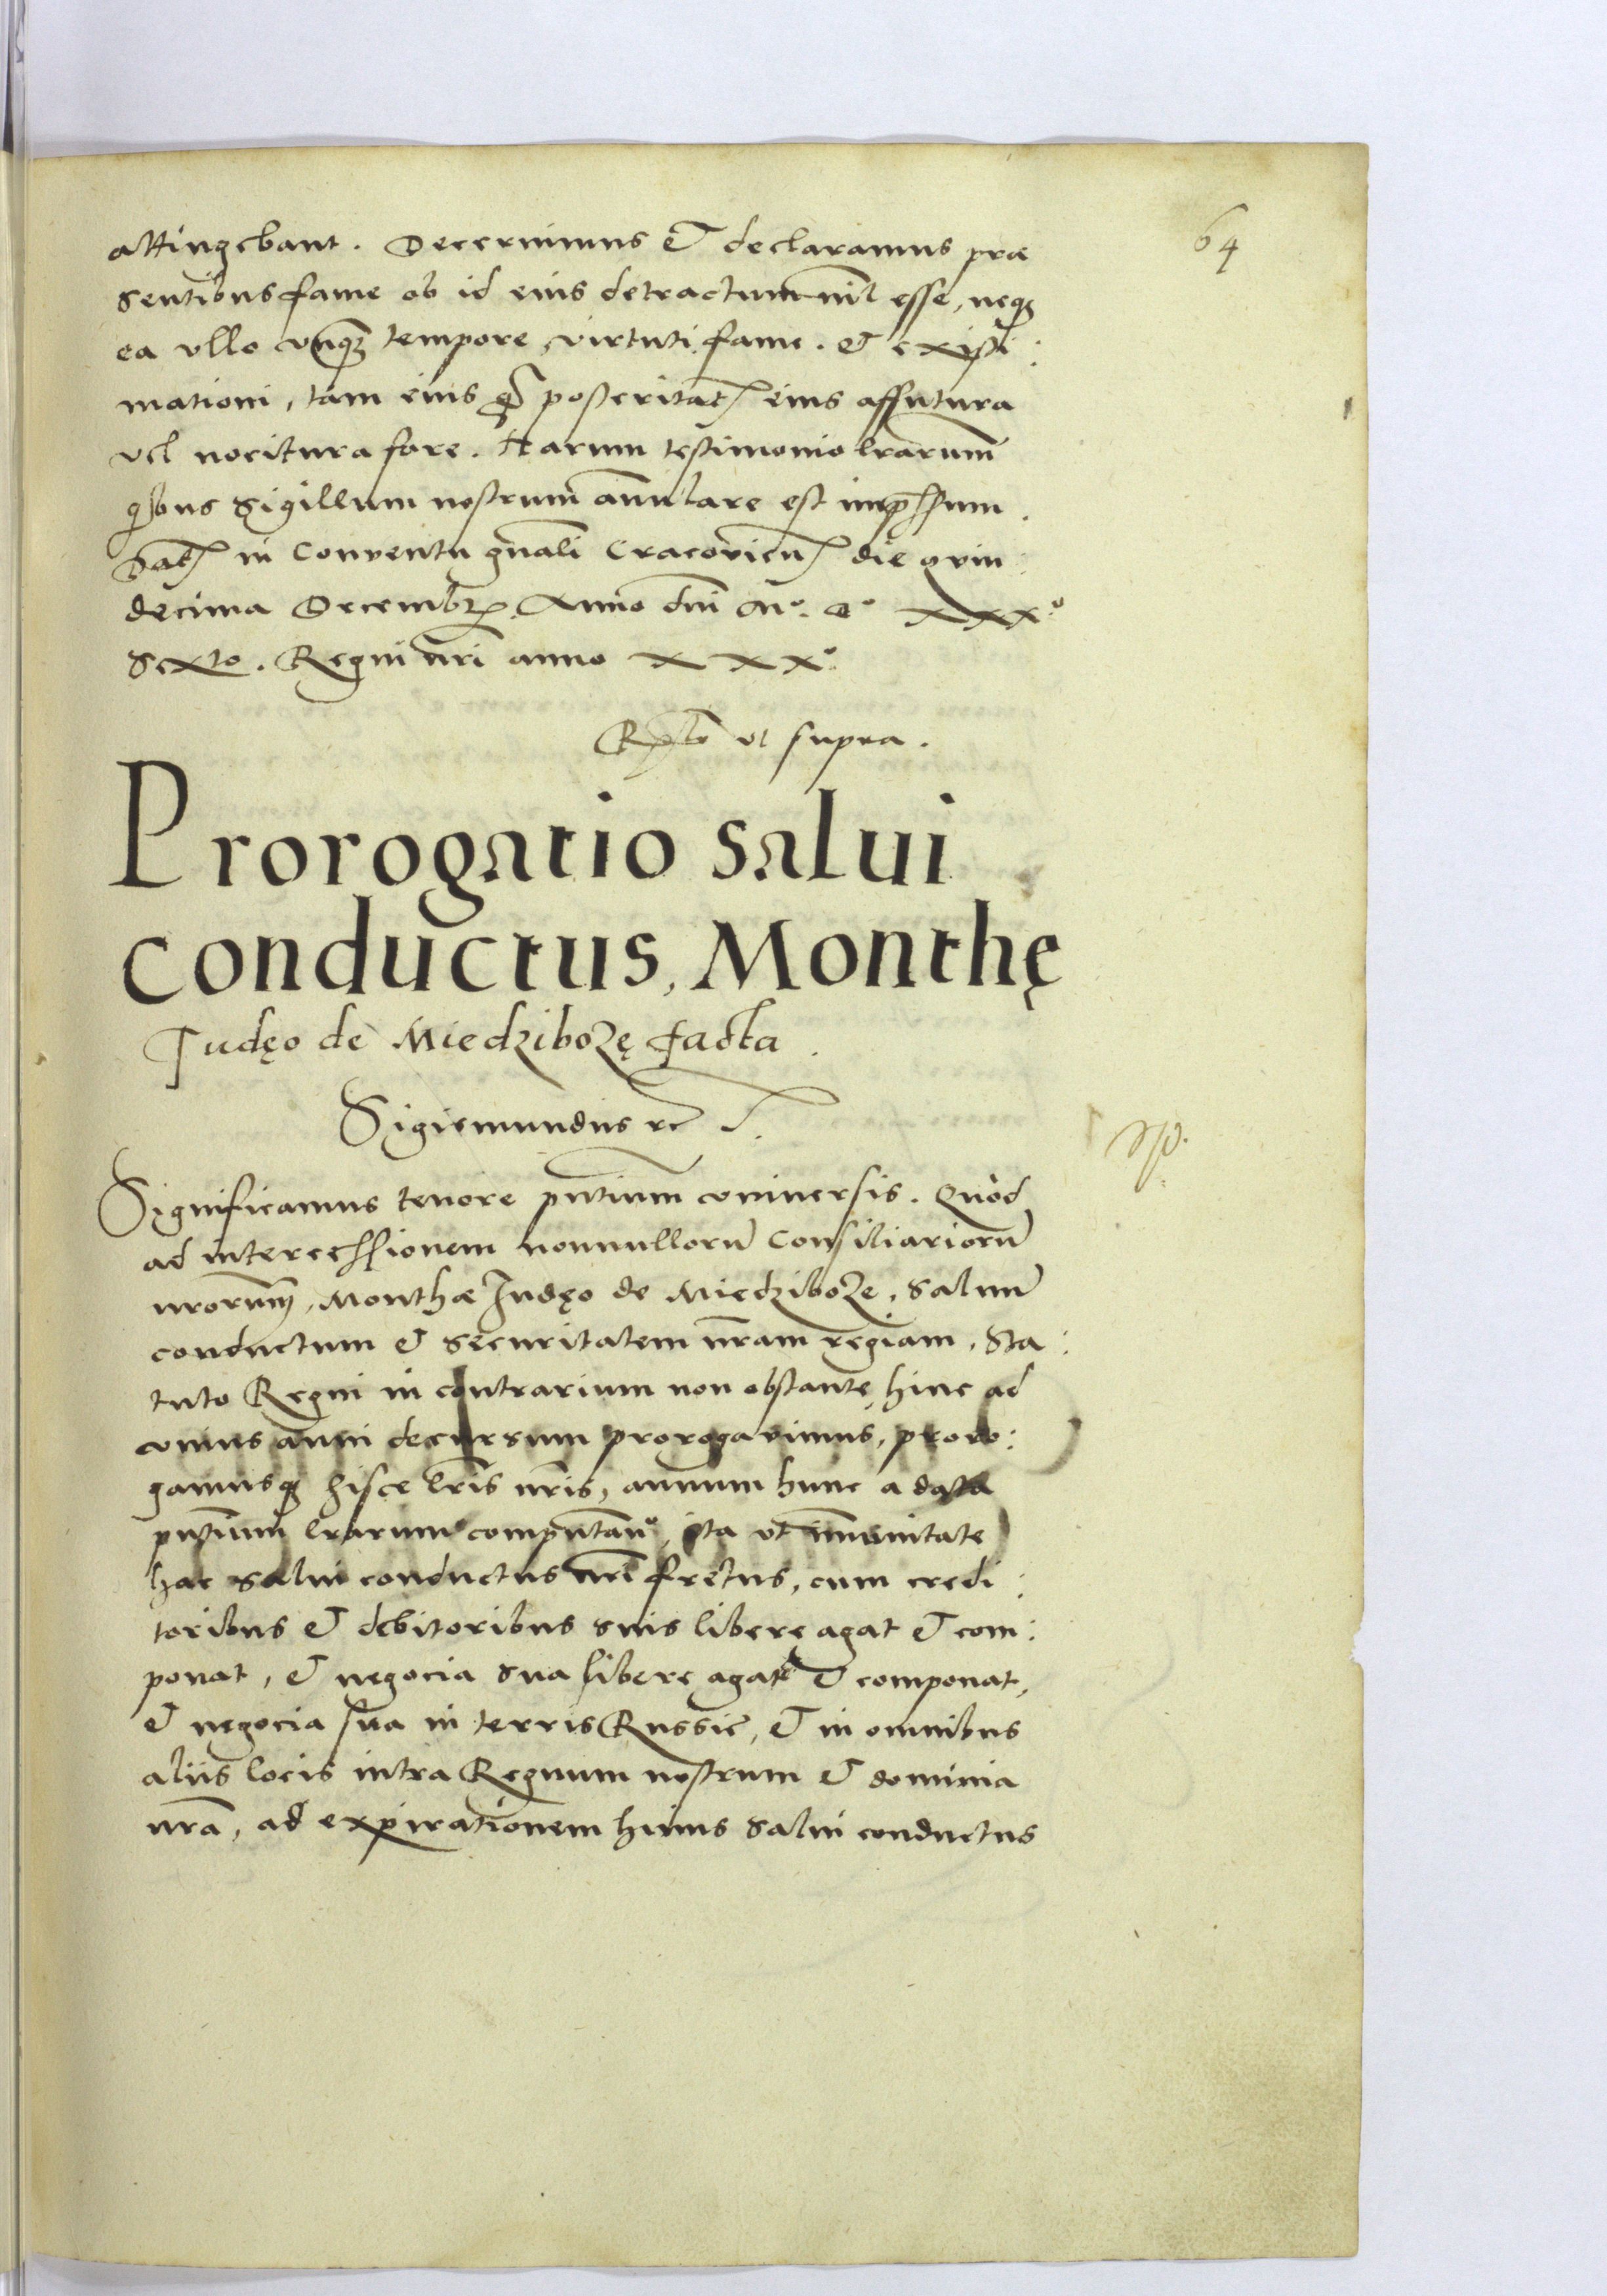 64
attingebant. Decernimus et declaramus præ
sentibus fame ob id eius detractum nil esse, neq3
ea vllo vnq̃3 tempore virtuti fame. et existi:
mationi, tam eius q̃ posteritat eius affutura
vel nocitura fore. Harum testimonio lrarum̃
qbus Sigillum nostrum annulare est imp̃ssum.
Dat in Conventu gñali Cracovien die qvin
decima Decembr Anno dni Mº. Dº xxxº
Sexto. Regni nr̃i anno xxxº.
Rlo vt supra.
Prorogatio salui
conductus, Monthę
Judęo de Miedzibozę facta.
Sigismundus rc
Significamus tenore pñtium vniuersis. Quòd
ad intercessionem nonnullorũ Consiliariorũ
nrorum̃, Monthæ Judęo de Miedziboze, Saluũ
conductum et securitatem nr̃am regiam, Sta:
tuto Regni in contrarium non obstante, hinc ad
vnius anni decursum prorogavimus, proro:
gamusq3 hisce lr̃is nr̃is, annum hunc a data
pñtium lrarum computanº, ita vt im̃unitate
hac salui conductus nr̃i fretus, cum credi:
toribus et debitoribus suis libere agat et com:
ponat, et negocia sua libere agat et componat,
et negocia sua in terris Russie, et in omnibus
aliis locis intra Regnum nostrum et dominia
nr̃a, ad expirationem huius salui conductus